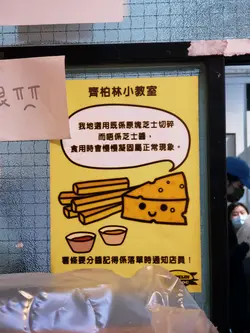 齊柏林小教室
我地選用既係原塊芝士切碎
而唔係芝士醬，
食用時會慢慢凝固屬正常現象。
薯條要分醬記得係落單時通知店員！